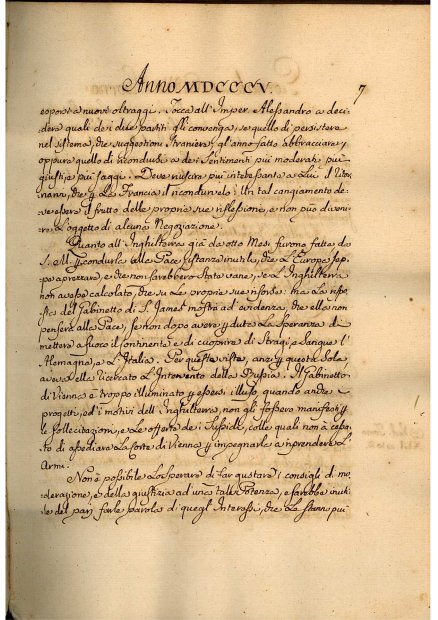 Anno MDCCCV.
7
esporsi a nuovi oltraggi. Tocca all'Imper. Alessandro a deci-
dere quali de i due partiti gli convenga, se quello di persistere
nel sistema, che suggestioni straniere gl'anno fatto abbracciare,
oppure quello di ricondursi a de i Sentimenti più moderati più
giusti, e più saggi. Deve riuscire più interessante a Lui il ritor-
narvi, che la Francia il ricondurvelo: Un tal cangiamento de-
ve essere il frutto delle proprie sue riflessioni, e non può diveni-
re L'oggetto di alcuna Negoziazione.
Quanto all'Inghilterra già da otto Mesi furono fatte da
S. M. ricondurla alla Pace istanze inutili, che L'Europa sep-
pe apprezzare, e che non sarebbero state vane, se L'Inghilterra
non avesse calcolato, che su Le proprie sue risorse: ma La rispo-
sta del Gabinetto di S. James mostrò ad evidenza, che ella non
penserà alla Pace, se non dopo avere perduta La Speranza di
mettere a fuoco il Continente e di cuoprire di Stragi, e Sangue l'
Alemagna, e L'Italia. Per questa vista, anzi per questa Sola
aveva ella ricercato L'Intervento della Prussia. Il Gabinetto
di Vienna è troppo illuminato per essersi illuso quando anche i
progetti, ed i motivi dell'Inghilterra, non gli fossero manifesti
le sollecitazioni, e Le offerte de i Sussidi, colle quali non à cessa-
to di assediare La Corte di Vienna per impegnarla a riprendere L'
Armi.
Non è possibile Lo sperare di far gustare i consigli di mo-
derazione, e della giustizia ad una tale Potenza, e sarebbe inuti-
le del pari farle parola di quegl'Interessi, che Le stanno più